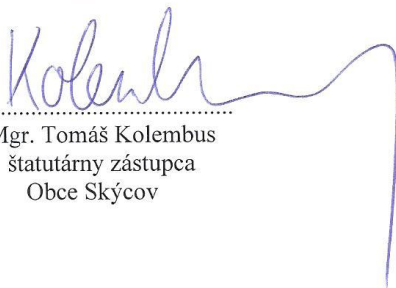 Kolembus
Mgr. Tomáš Kolembus
štatutárny zástupca
Obce Skýcov